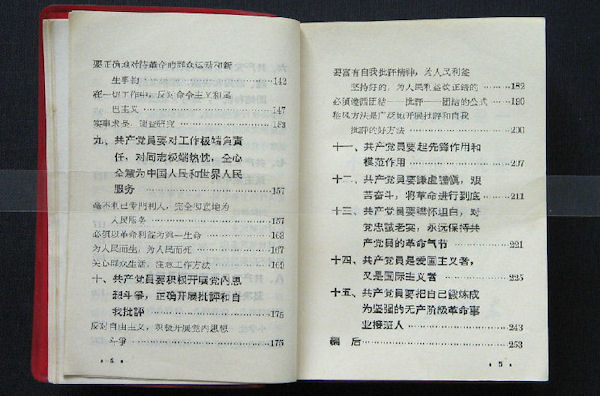 要正确地对待革命的群众运动和新
生事物……142
在一切工作中，反对命令主义和尾
巴主义……147
实事求是，调查研究……153
九、共产党员要对工作极端负责
任，对同志极端热忱，全心
全意为中国人民和世界人民
服务……157
毫不利己专门利人，完全彻底地为
人民服务……157
必须以革命利益为第一生命……163
为人民而生，为人民而死……167
关心群众生活，注意工作方法……169
十、共产党员要积极开展党内思
想斗爭，正确开展批评和自
我批評……175
反对自由主义，积极开展党内思想
斗爭……175
· 4 ·
要富有自我批評精神，为人民利益
坚持好的，为人民利益改正錯的……182
必須遵循团結——批評——团結的公式……190
和风方法是广泛地开展批評和自我
批評的好方法……200
十一、共产党员要起先鋒作用和
模范作用……207
十二、共产党员要謙虛謹慎，艰
苦奋斗，将革命进行到底……211
十三、共产党员要襟怀坦白，对
党忠誠老实，永远保持共
产党员的革命气节……221
十四、共产党员是爱国主义者，
又是国际主义者……225
十五、共产党员要把自己鍛炼成
为坚强的无产阶級革命事
业接班人……243
編 后……253
· 5 ·